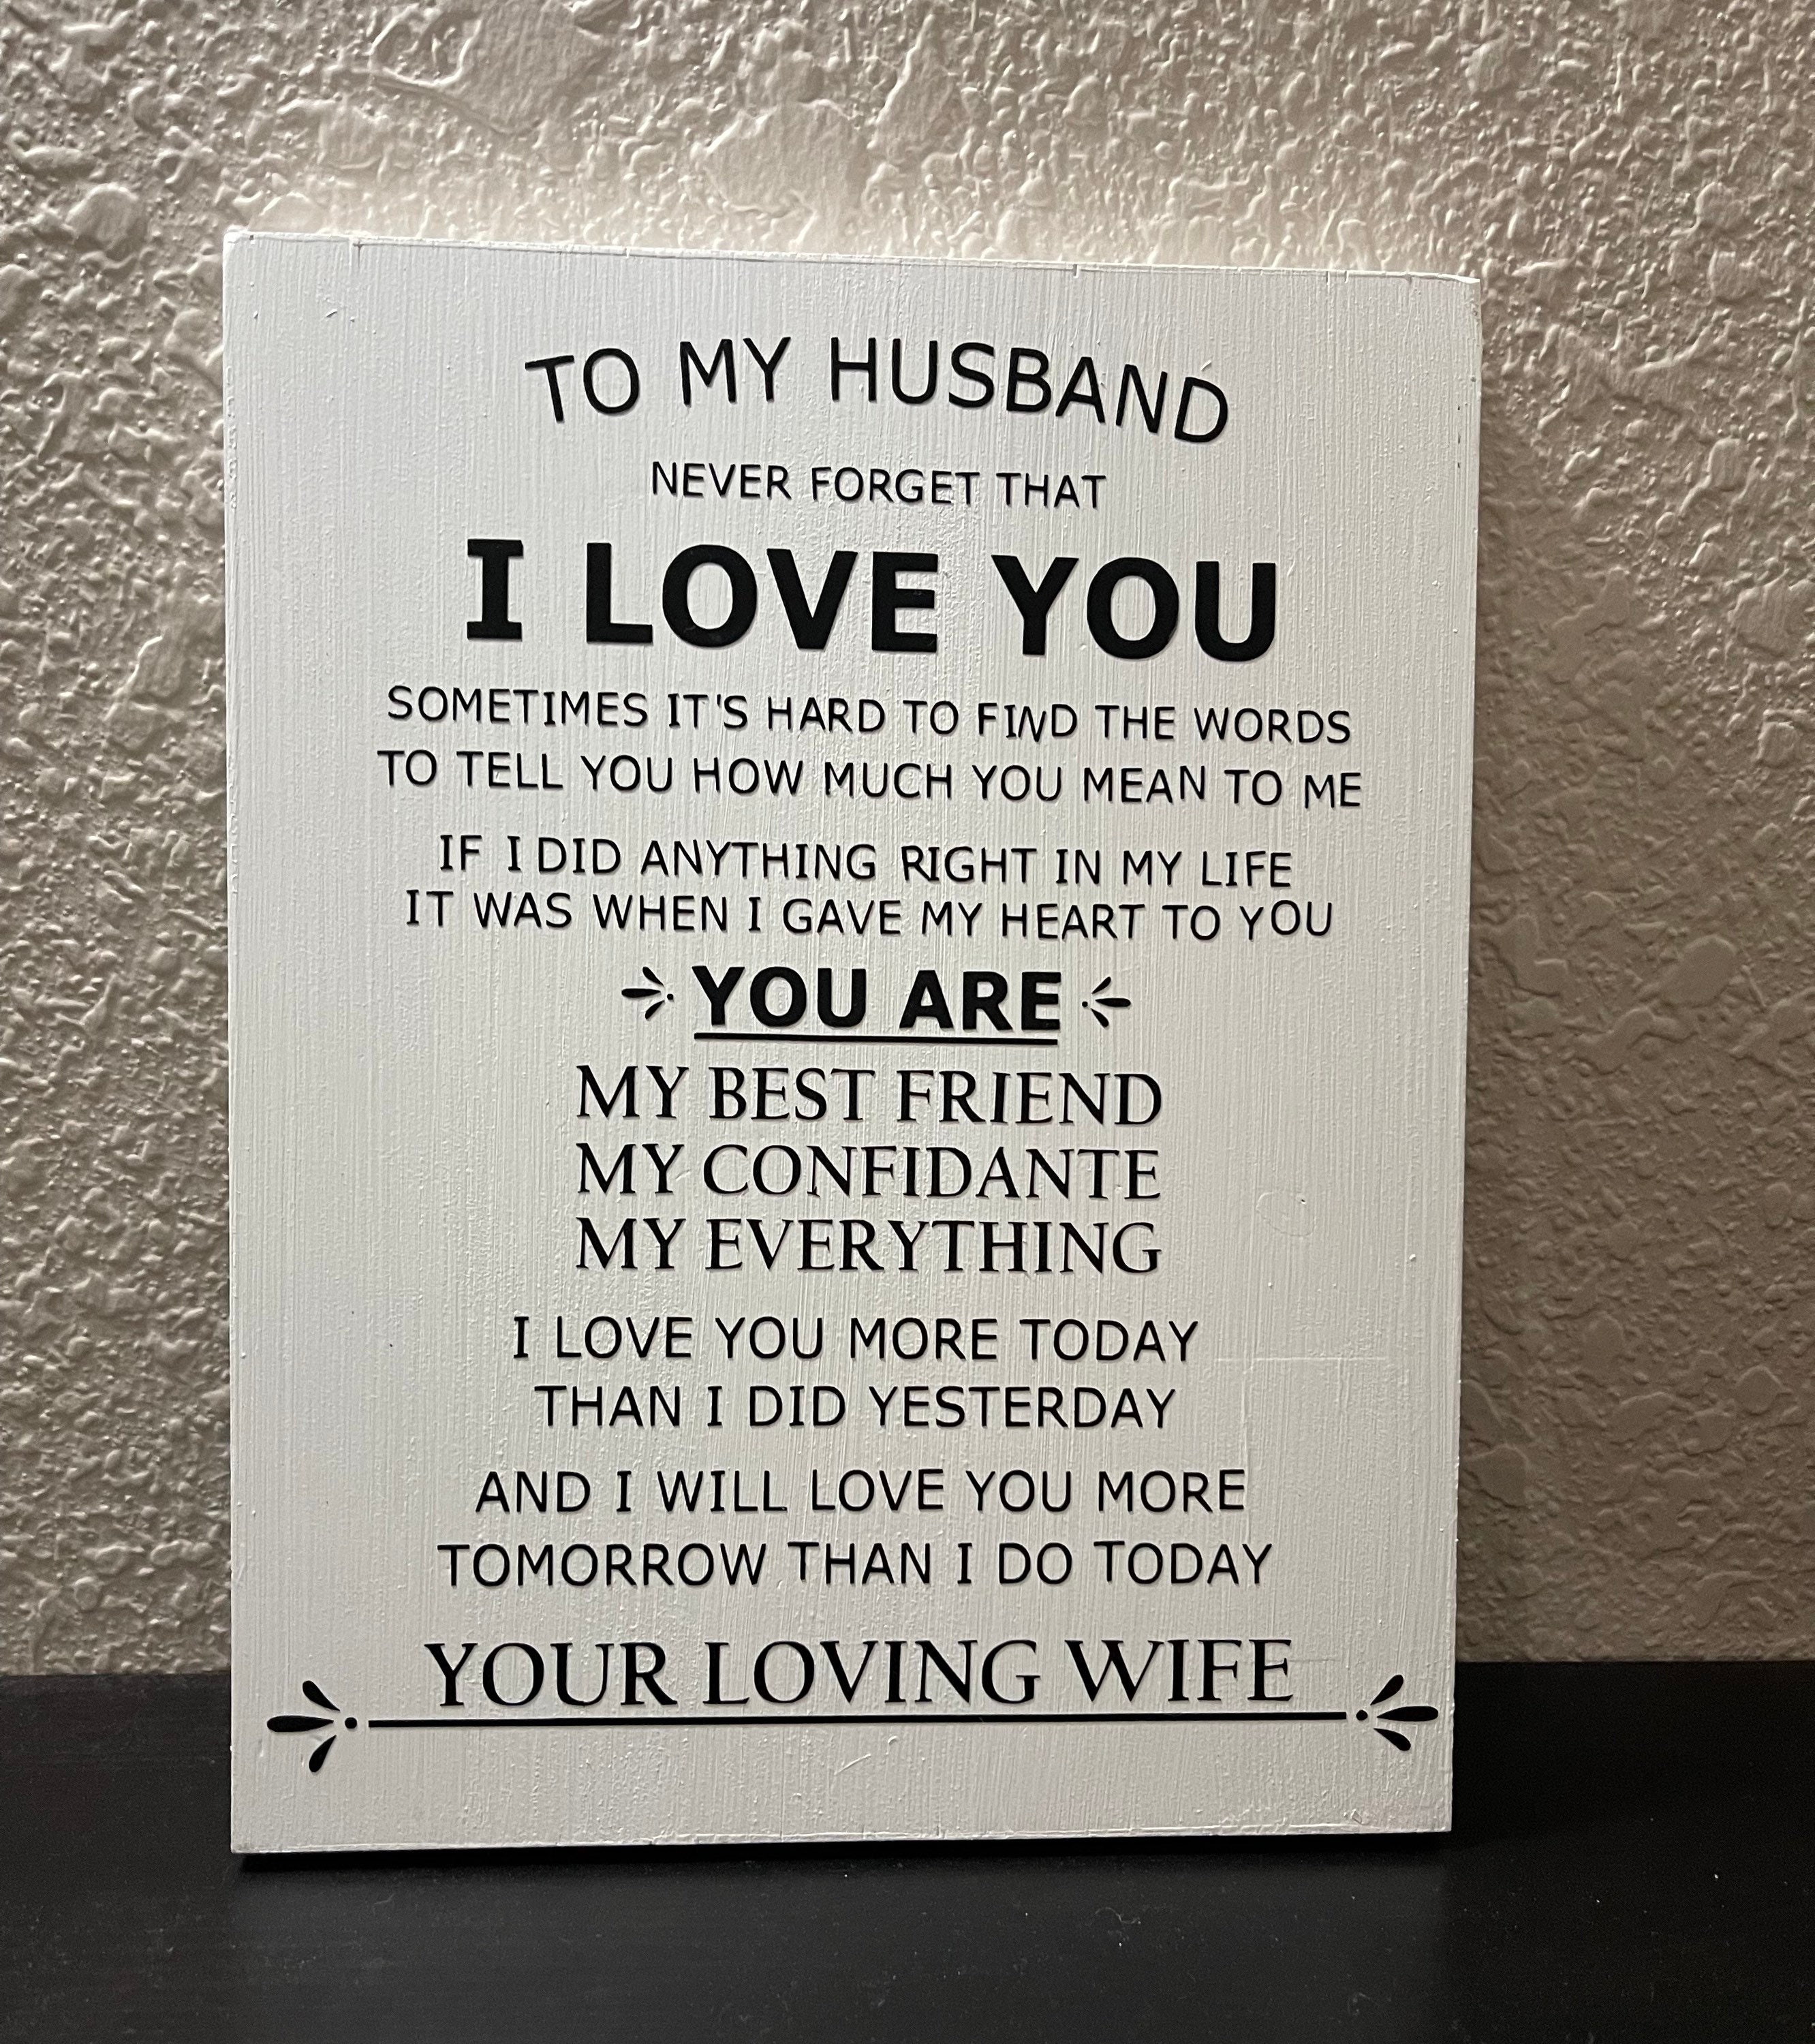 TO MY HUSBAND
NEVER FORGET THAT
I LOVE YOU
SOMETIMES IT'S HARD TO FIND THE WORDS
TO TELL YOU HOW MUCH YOU MEAN TO ME
IF I DID ANYTHING RIGHT IN MY LIFE
IT WAS WHEN I GAVE MY HEART TO YOU
YOU ARE
MY BEST FRIEND
MY CONFIDANTE
MY EVERYTHING
I LOVE YOU MORE TODAY
THAN I DID YESTERDAY
AND I WILL LOVE YOU MORE
TOMORROW THAN I DO TODAY
YOUR LOVING WIFE